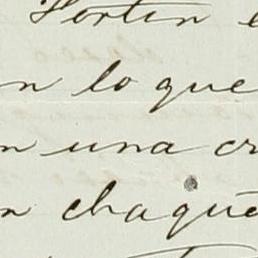 Fortin e
n lo que
n una cr
n chaque